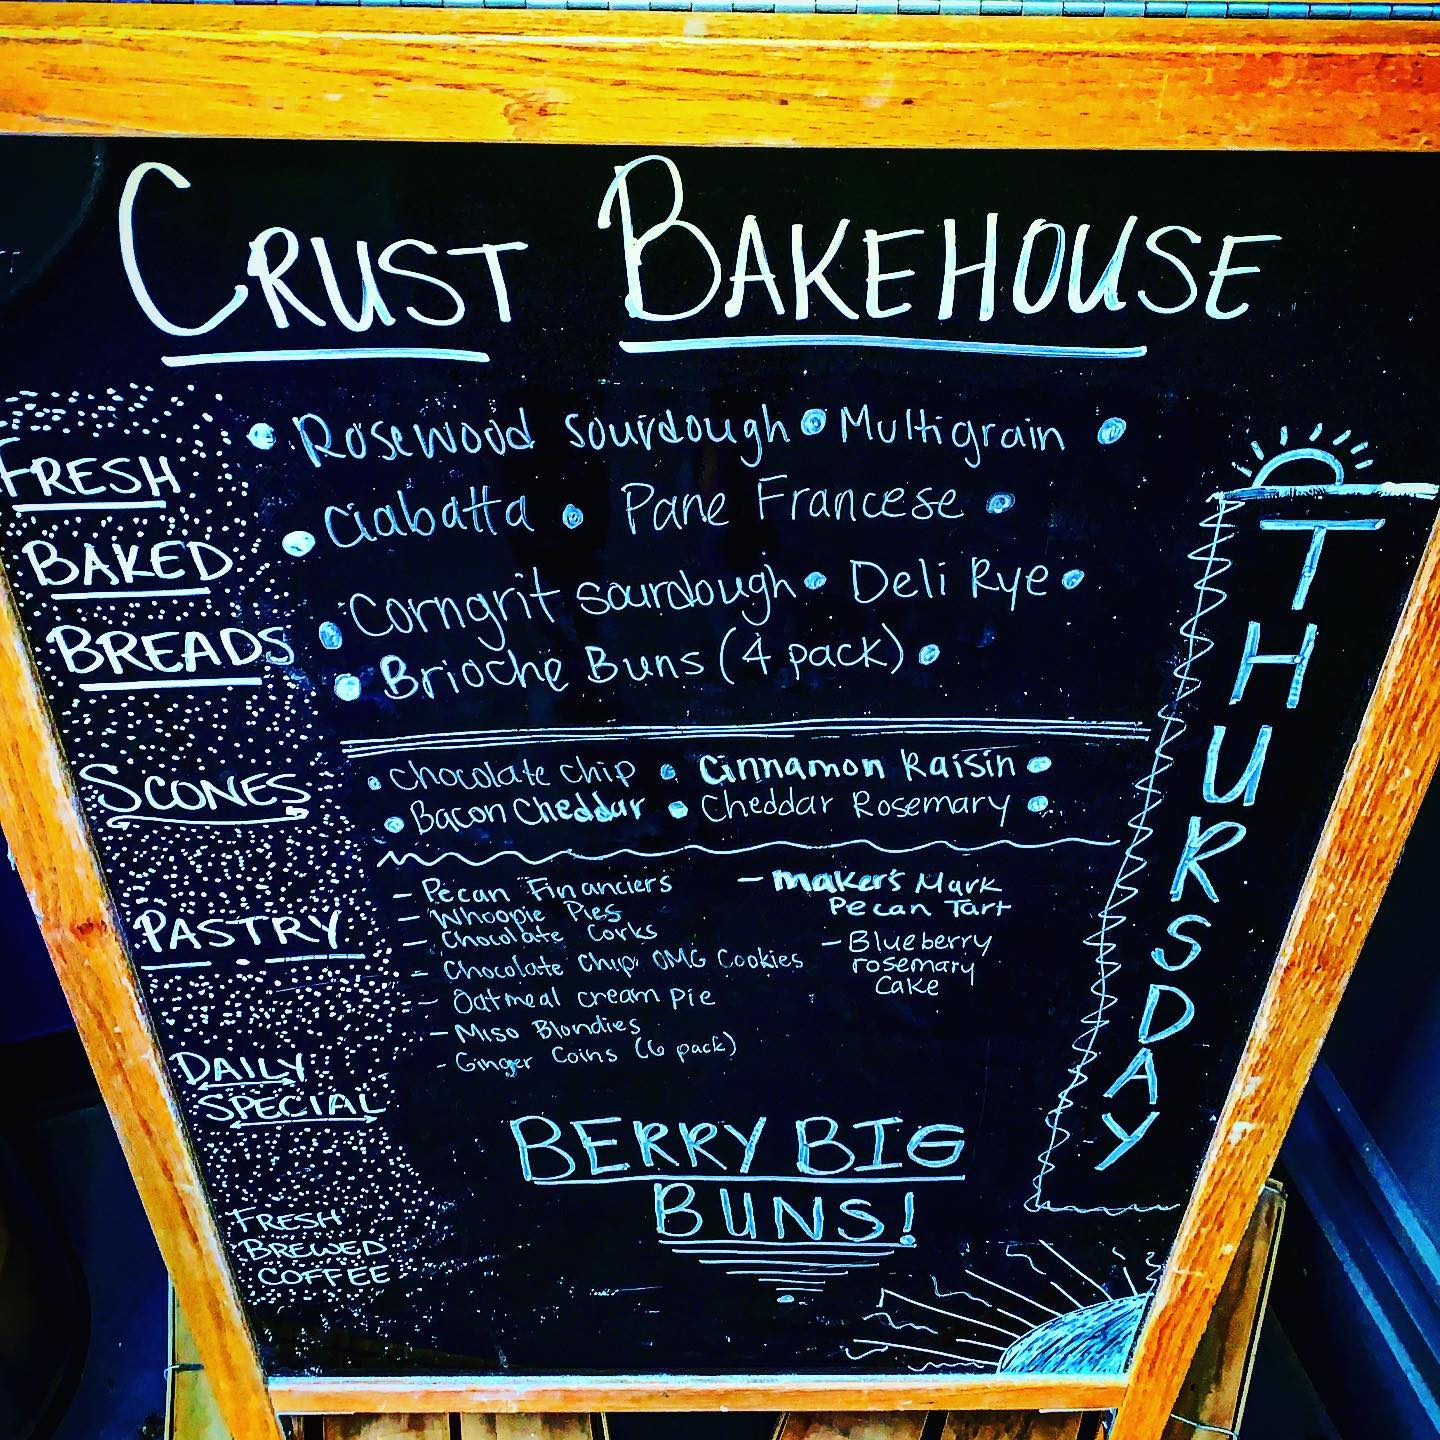 CRUST BAKEHOUSE
FRESH
BAKED
BREADS
• Rosewood Sourdough • Multigrain •
• Ciabatta • Pane Francese •
• Corngrit sourdough • Deli Rye •
• Brioche Buns (4 pack) •
SCONES
• Chocolate Chip • Cinnamon Raisin •
• Bacon Cheddar • Cheddar Rosemary •
PASTRY
- Pecan Financiers
- Whoopie Pies
- Chocolate Corks
- Chocolate Chip OMG Cookies
- Oatmeal cream pie
- Miso Blondies
- Ginger Coins (6 pack)
- Maker's Mark
Pecan Tart
- Blueberry
rosemary
Cake
DAILY
SPECIAL
BERRY BIG
BUNS!
FRESH
BREWED
COFFEE
THURSDAY